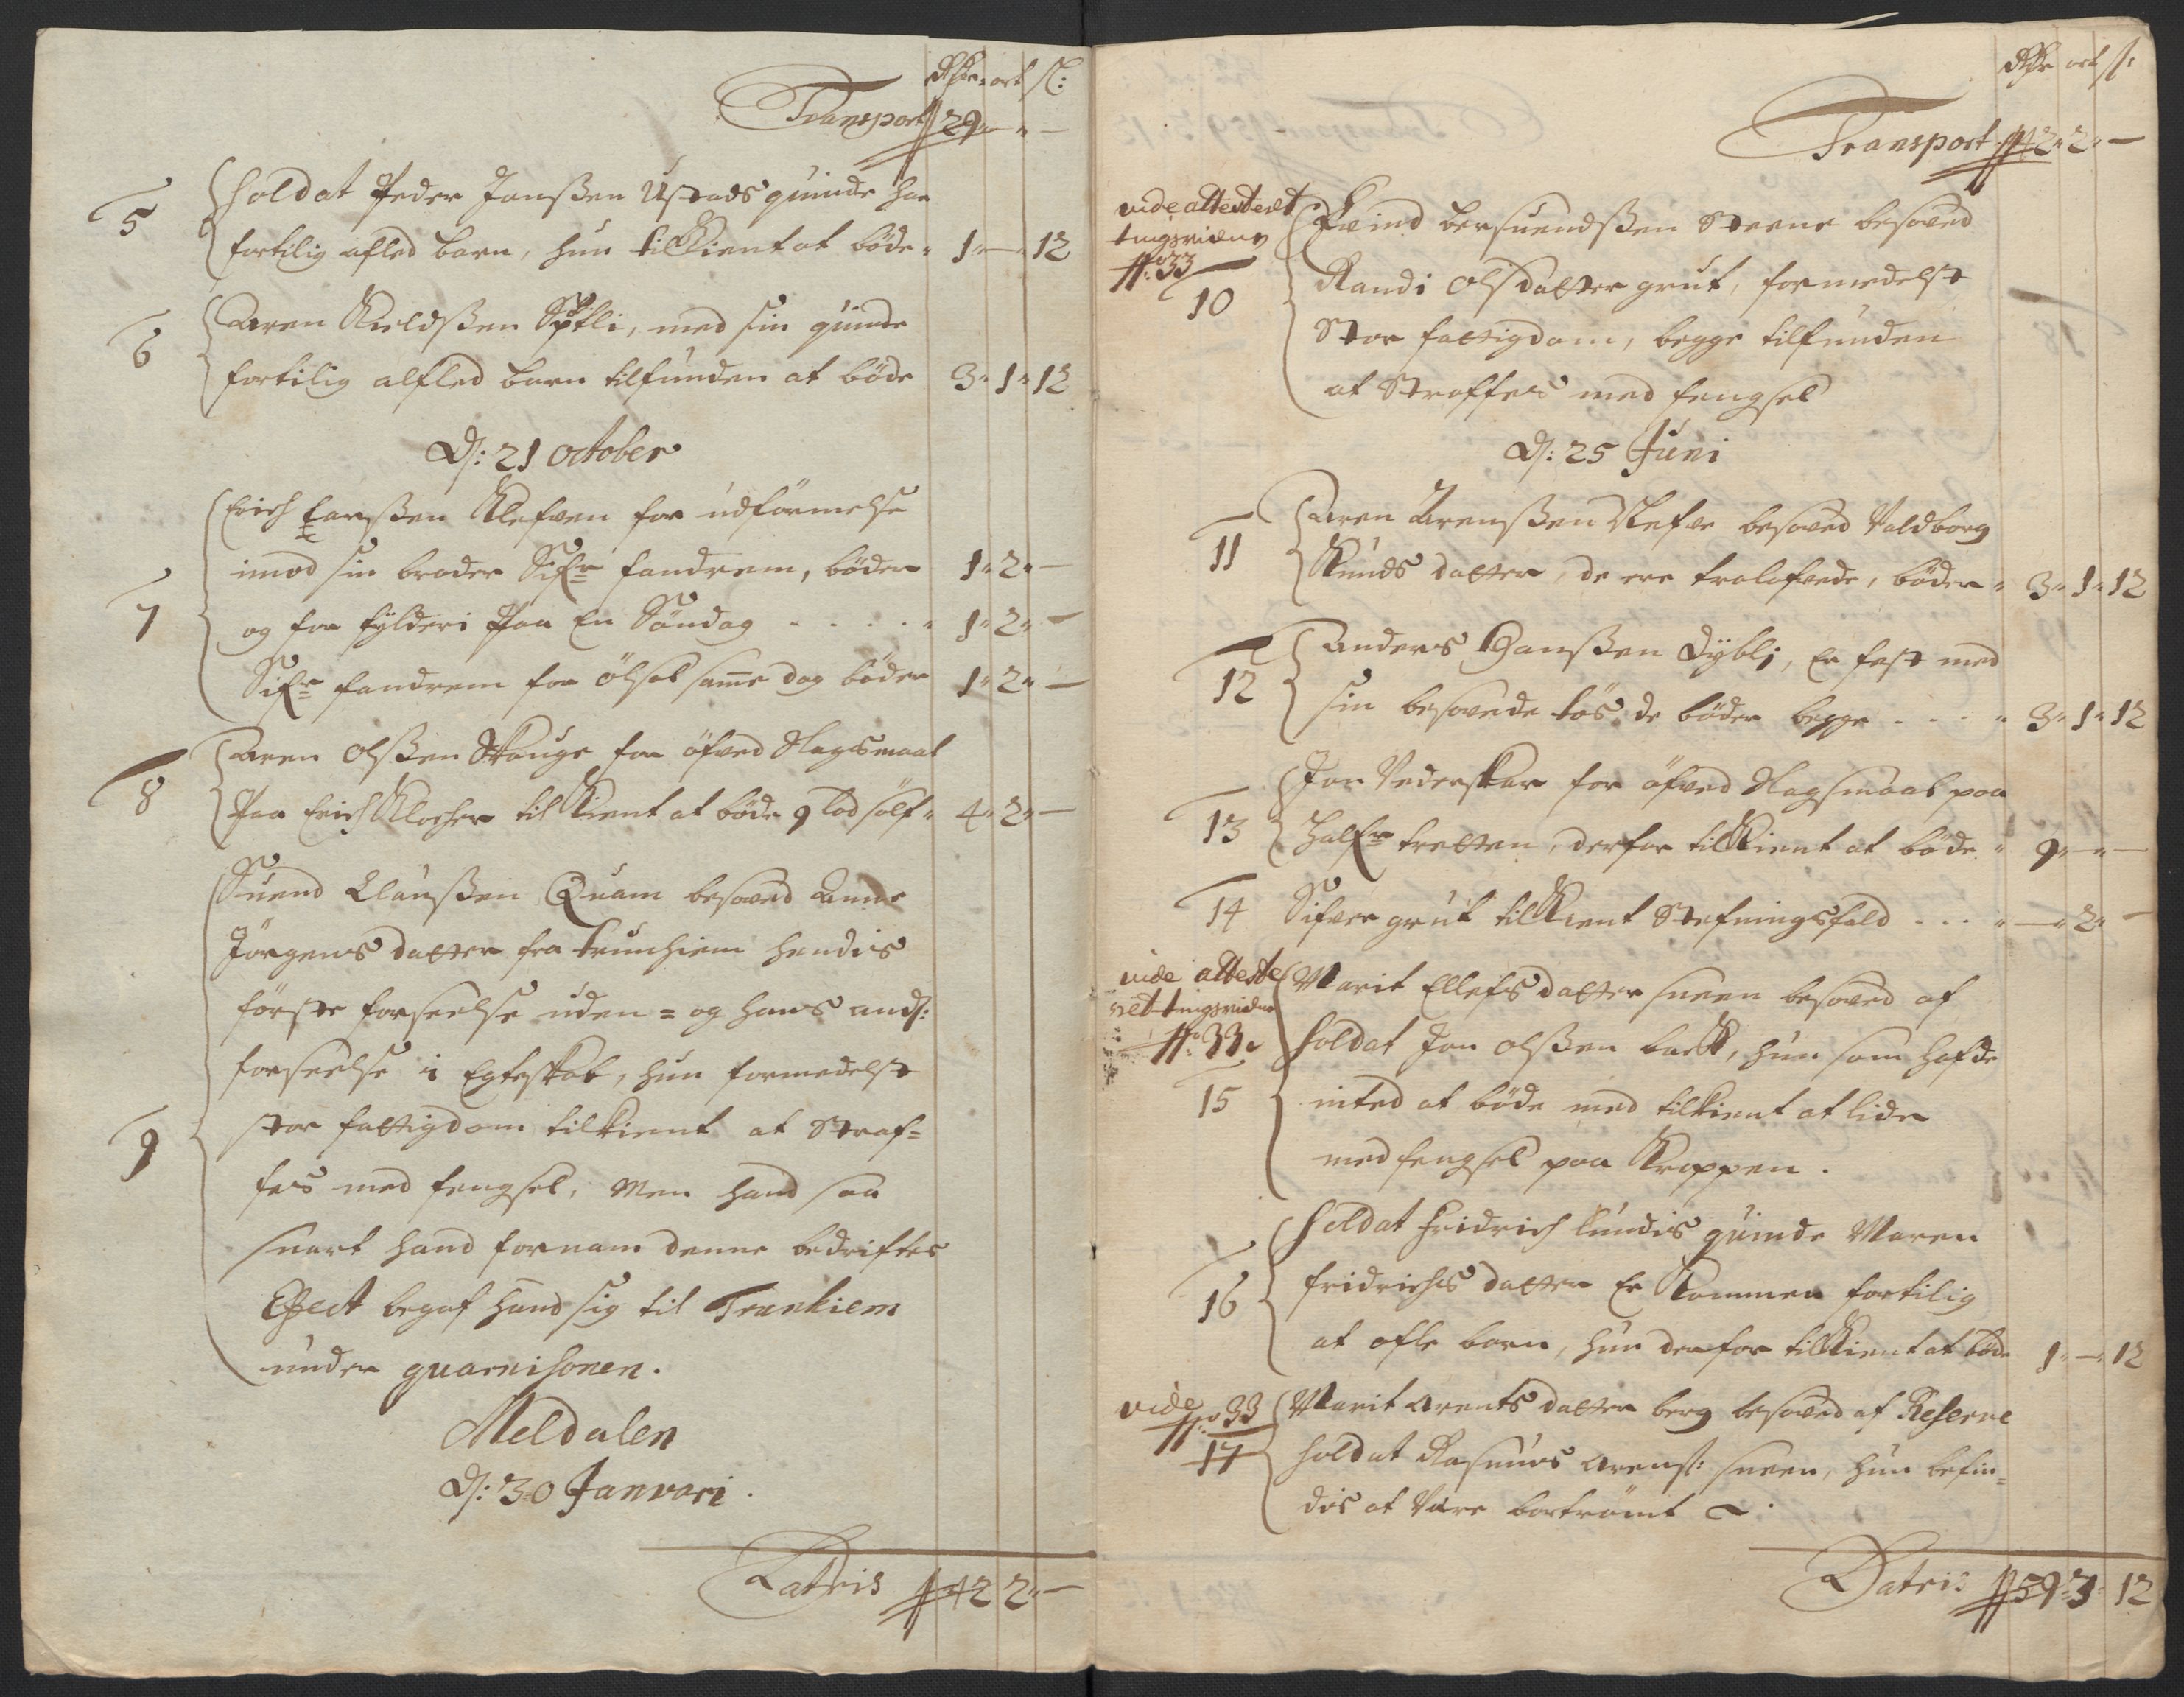 Rdr ort s:
Transport 29 " –
5 Soldat Peder Janßen Ustads quinde har
fortilig afled barn, hun tilkient at böde " 1 " – " 12
6 Aren Kieldßen Spilli, med sin quinde
fortilig alfled barn tilfunden at böde 3 " 1 " 12
D: 21 October
Erich Larßen Klefven for udförmelse
imod sin broder Sifr fandrem, böder 1 " 2 " –
7 og for fylderi paa En Söndag . . . . " 1 " 2 " –
Sifr fandrem for ölsal samme dag böder 1 " 2 " –
Aren Olßen Skauge for öfved Slagsmaal
8 paa Erich Klocher tilkient at böde 9 lod sölf " 4 " 2 " –
Suend Claußen Quam besoved Anne
Jörgens datter fra trunhiem hendis
förste forseelse uden = og hans and:
forseelse i Egteskab, hun formedelst
9 stor fattigdom tilkient at Straf=
fes med fengsel, Men hand saa
snart hand fornam denne bedriftes
Effect begaf hand sig til Trunhiem
under guarnisonen.
Meldalen
D: 30 Januari
Lateris 42 2 " –
Rdr ort s:
Transport 42 " 2 " –
vide attesteret
tingsvidne
No 33
10 Evind Bersuendßen Steene besoved
Randi Olsdatter grut, formedelst
Stor fattigdom, begge tilfunden
at Straffes med fengsel
D: 25 Juni
11 Aren Arenßen Klefve besoved Valdborg
Knuds datter, de ere trolofvede, böder " 3 " 1 " 12
12 Anders Hanßen Dybli, Er fest med
sin besovede tös de böder begge . . . " 3 " 1 " 12
Jon Vederskar for öfved Slagsmaal paa
13 Halfr tretten, derfor tilkient at böde " 9 " – " –
14 Sifver grut tilkient Stefningsfald . . . " – " 2 " –
vide atteste
ret tingsvidne
No 33.
Marit Ellefs datter sneen besoved af
Soldat Jon Olßen back, hun som hafde
15 inted at böde med tilkient at lide
med fengsel paa Kroppen.
Soldat Fridrich lundis quinde Maren
16 fridrichs datter Er kommen fortilig
at afle barn, hun derfor tilkient at böde 1 " – " 12
vide
No 33
17 Marit Arents datter berg besoved af Reserve
Soldat Rasmus Arens: sneen, hun befin=
dis at Være bortrömt
Lateris 59 " 3 " 12